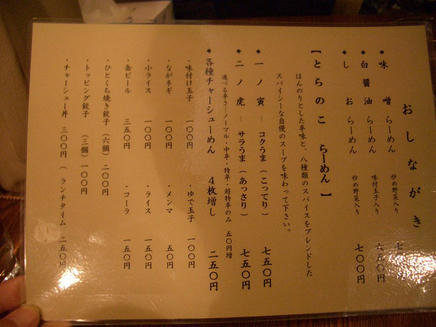 おしながき
◆味噌らーめん 炒め野菜入り
◆白醤油らーめん 味付玉子入り 七五〇円
◆しおらーめん 炒め野菜入り 七〇〇円
【とらのこ らーめん】
ほんのりとした辛味と、八種類のスパイスをブレンドした
スパイシーな自慢のスープを味わって下さい。
◆一ノ寅 － コクうま（こってり） 七五〇円
◆二ノ虎 － サラうま（あっさり） 七五〇円
◆各種チャーシューめん 4枚増し 二五〇円
・味付け玉子 一〇〇円 ・ゆで玉子 一〇〇円
・ながネギ 一〇〇円 ・メンマ 一五〇円
・小ライス 一〇〇円 ・ライス 一五〇円
・缶ビール 三五〇円 ・コーラ 一五〇円
・ひとくち焼き餃子（六個）二〇〇円
・トッピング餃子（三個）一〇〇円
・チャーシュー丼 三〇〇円（ランチタイム・二五〇円